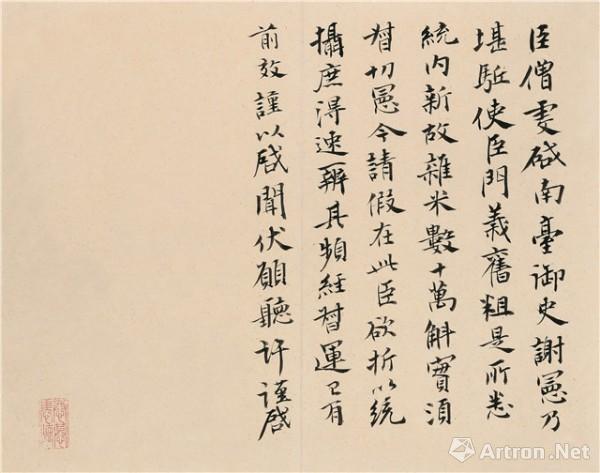 臣僧虔啓南臺御史謝憲乃
堪駈使臣門義舊粗是所悉
統内新故雜米數十萬斛實須
督切憲今請假在此臣欲折以統
攝庶得速辦其頻經督運已有
前效謹以啓聞伏願聽許謹啓
Artron.Net